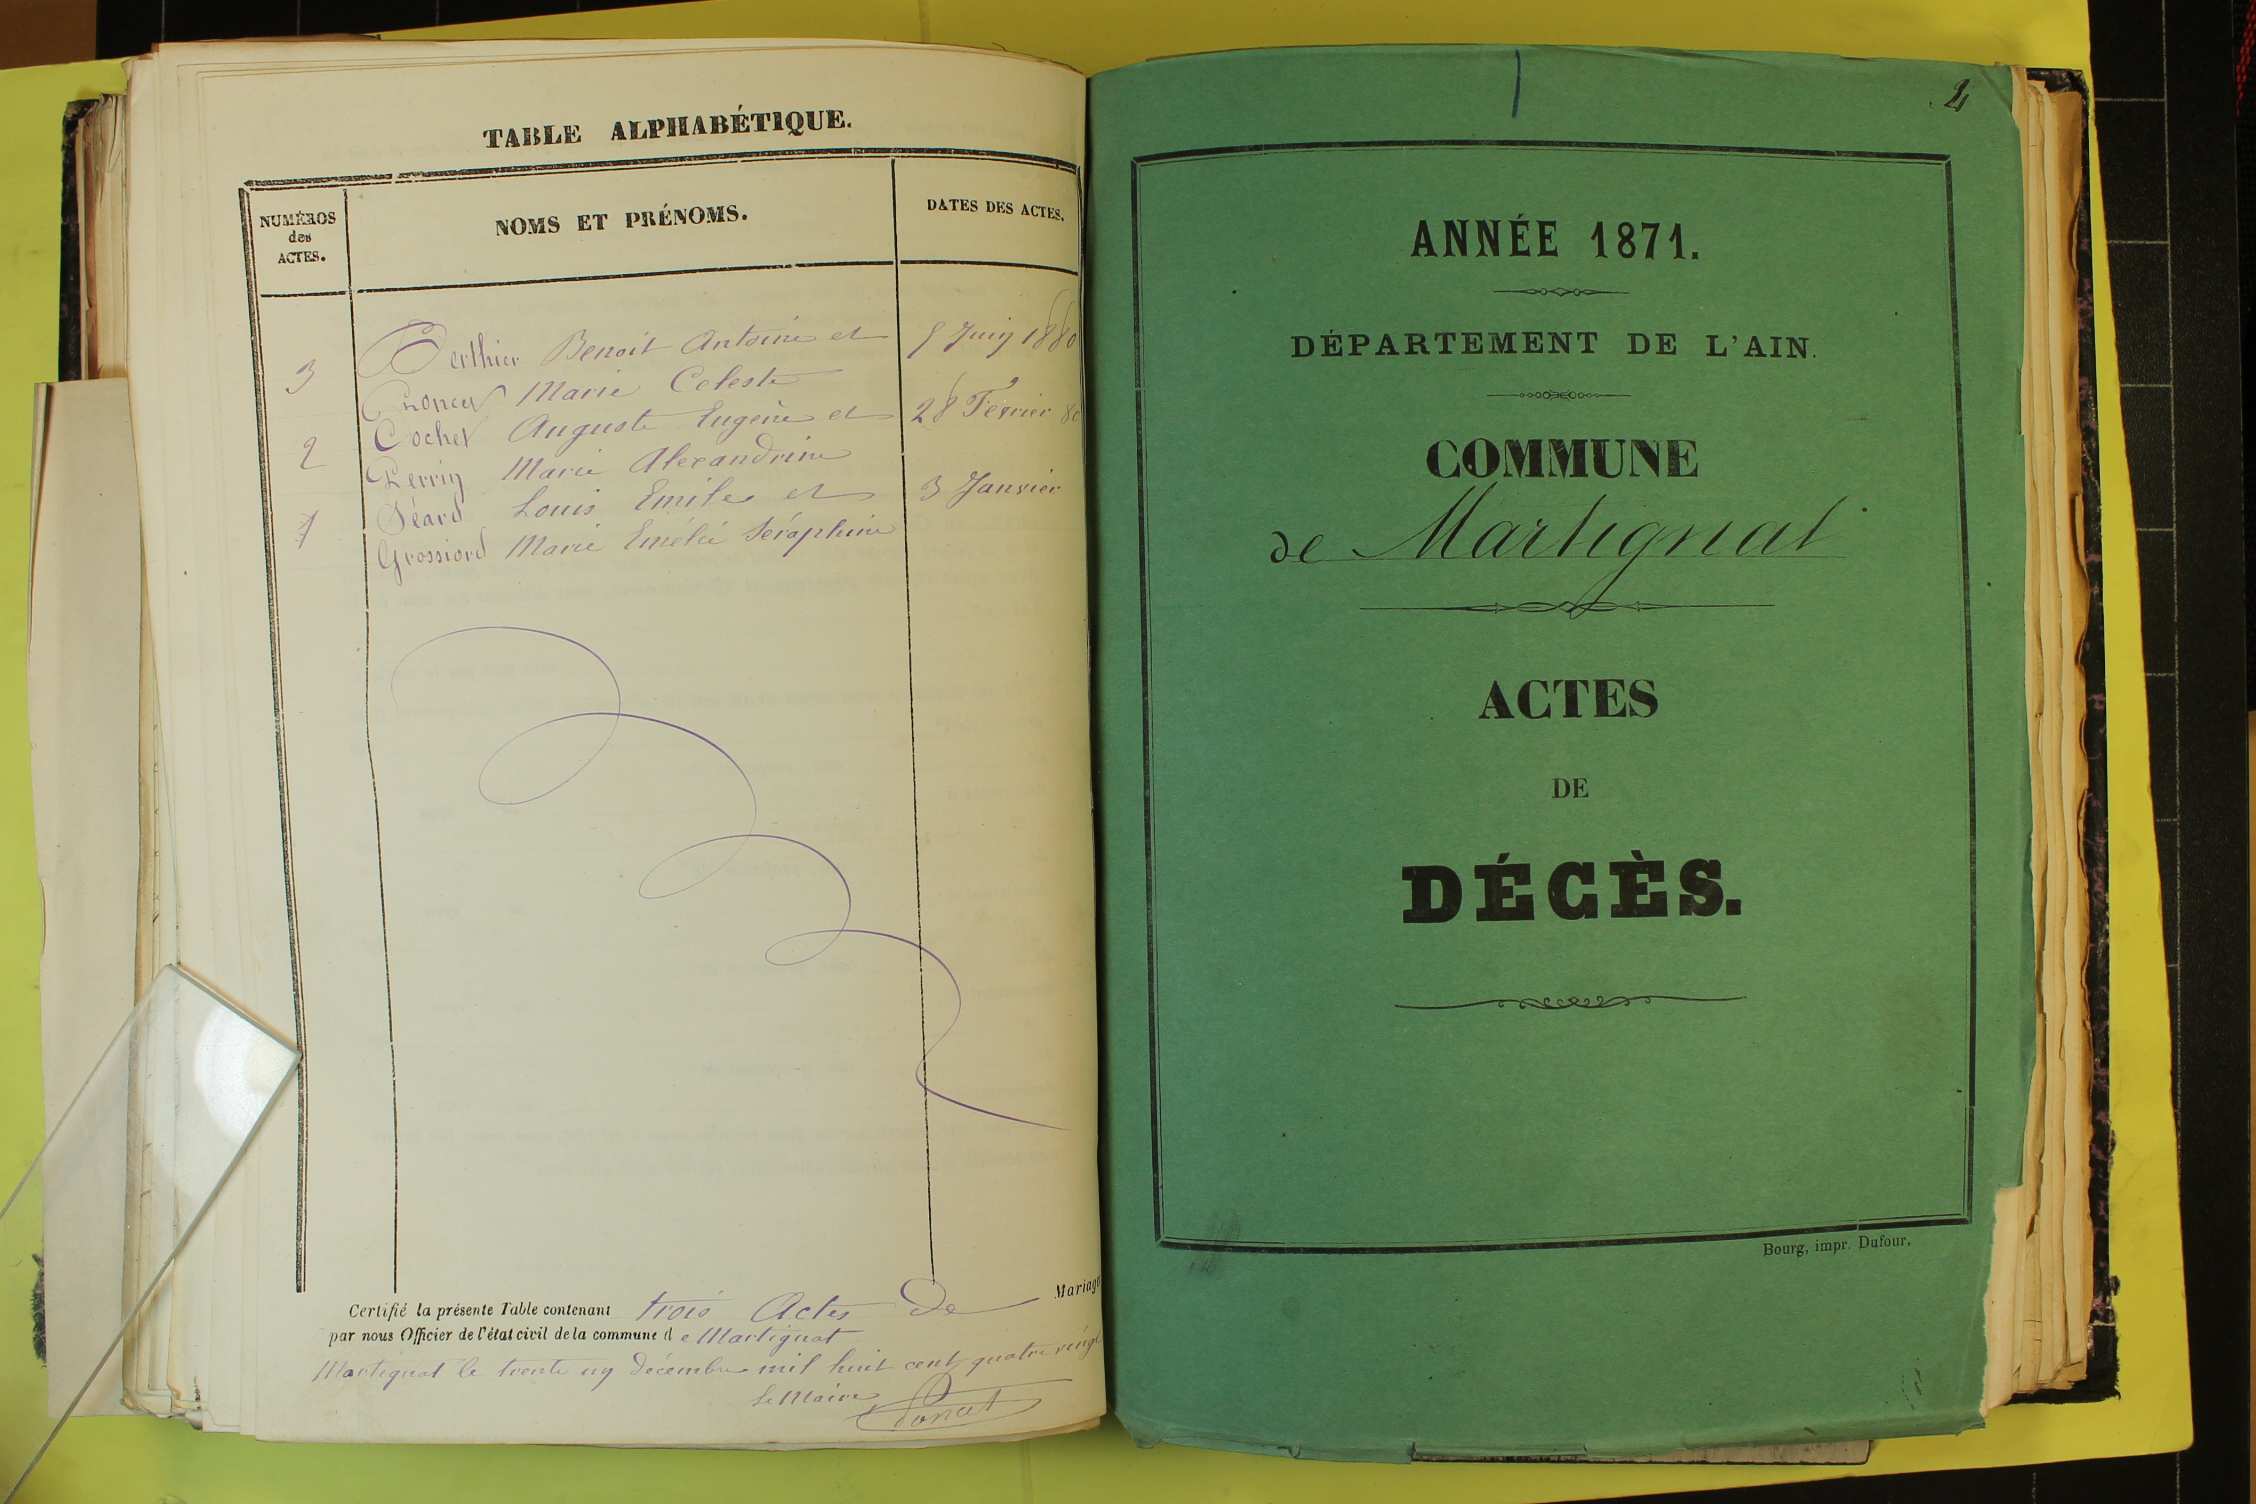 TABLE ALPHABÉTIQUE.
NUMÉROS
des
ACTES.
NOMS ET PRÉNOMS.
DATES DES ACTES.
3 Berthier Benoit Antoine et 5 Juin 1880
Marie Celeste
2 Cochet Auguste Eugène et 28 Février 80
Perrin Marie Alexandrine
1 Séard Louis Emile et 3 Janvier
Grossiord Marie Emélie Séraphine
Certifié la présente Table contenant trois Actes De Mariage
par nous Officier de l'état civil de la commune d e Martignat
Martignat le trente un décembre mil huit cent quatre vingt
Le Maire
2
ANNÉE 1871.
DÉPARTEMENT DE L'AIN.
COMMUNE
de Martignat
ACTES
DE
DÉCÈS.
Bourg, impr. Dufour.